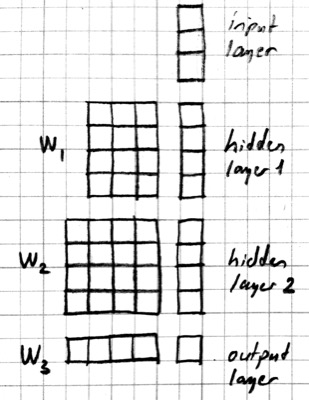 input
layer
W1
hidden
layer 1
W2
hidden
layer 2
W3
output
layer